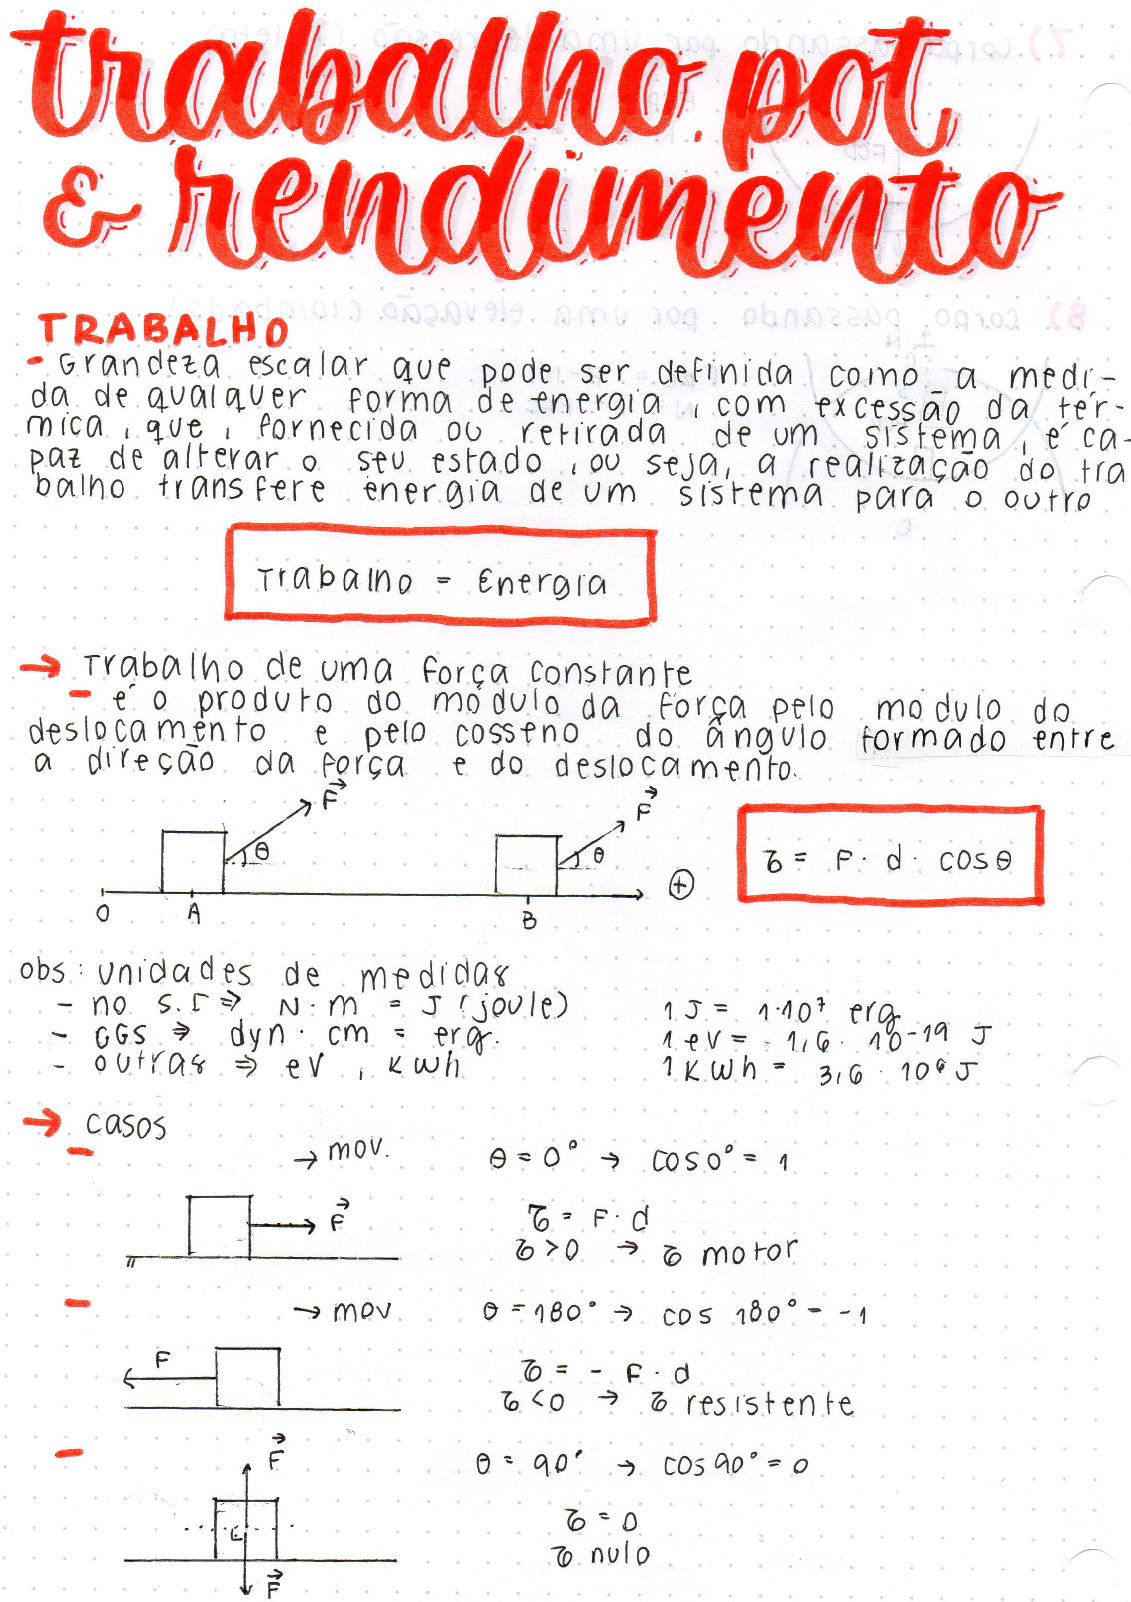 trabalho, pot,
& rendimento
TRABALHO
- Grandeza escalar que pode ser definida como a medi-
da de qualquer forma de energia, com excessão da tér-
mica, que, fornecida ou retirada de um sistema, é ca-
paz de alterar o seu estado, ou seja, a realização do tra
balho transfere energia de um sistema para o outro
Trabalho = Energia
→ Trabalho de uma força constante
- é o produto do módulo da força pelo módulo do
deslocamento e pelo cosseno do ângulo formado entre
a direção da força e do deslocamento.
F⃗ F⃗
θ θ
0 A B +
τ = F · d · cosθ
obs: unidades de medidas
- no S.I ⇒ N·m = J (joule) 1 J = 1·10⁷ erg
- CGS ⇒ dyn · cm = erg. 1 eV = 1,6 · 10⁻¹⁹ J
- outras ⇒ eV, kWh 1 KWh = 3,6 · 10⁶ J
→ casos
- → mov. θ = 0° → cos0° = 1
F⃗ τ = F · d
τ > 0 → τ motor
- → mov θ = 180° → cos 180° = -1
F τ = - F · d
τ < 0 → τ resistente
- F⃗ θ = 90° → cos90° = 0
τ = 0
τ nulo
F⃗